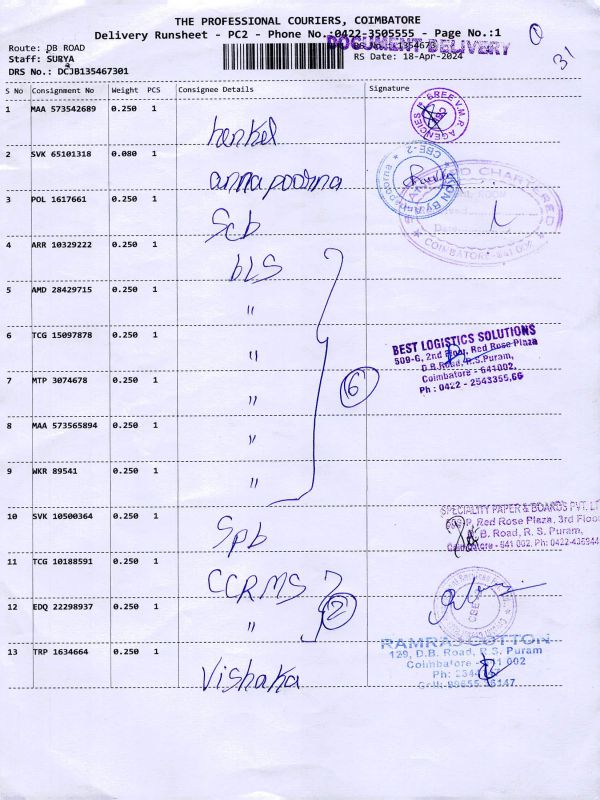 THE PROFESSIONAL COURIERS, COIMBATORE
Delivery Runsheet - PC2 - Phone No.:0422-3505555 - Page No.:1
DOCUMENT DELIVERY
Route: DB ROAD
Staff: SURYA
RS Date: 18-Apr-2024
DRS No.: DCJB135467301
31
S No Consignment No Weight PCS Consignee Details Signature
1 MAA 573542689 0.250 1 henkel
SREE V.M.R. AGENCIES
2 SVK 65101318 0.080 1 annapoorna
CBE-2
3 POL 1617661 0.250 1 Scb
CHARTERED
COIMBATORE
4 ARR 10329222 0.250 1 bLS
5 AMD 28429715 0.250 1 "
6 TCG 15097878 0.250 1 "
BEST LOGISTICS SOLUTIONS
509-G, 2nd Floor, Red Rose Plaza
D.B.Road, R.S.Puram,
Coimbatore - 641002.
Ph : 0422 - 2543355,66
7 MTP 3074678 0.250 1 "
6
8 MAA 573565894 0.250 1 "
9 WKR 89541 0.250 1 "
10 SVK 10500364 0.250 1 Spb
SPECIALITY PAPER & BOARDS PVT. LT
Red Rose Plaza, 3rd Floor
B. Road, R. S. Puram,
Coimbatore - 641 002. Ph: 0422-436844
11 TCG 10188591 0.250 1 CCRMS
12 EDQ 22298937 0.250 1 "
2
13 TRP 1634664 0.250 1 Vishaka
RAMRAJ COTTON
129, D.B. Road, R.S. Puram
Coimbatore - 641 002